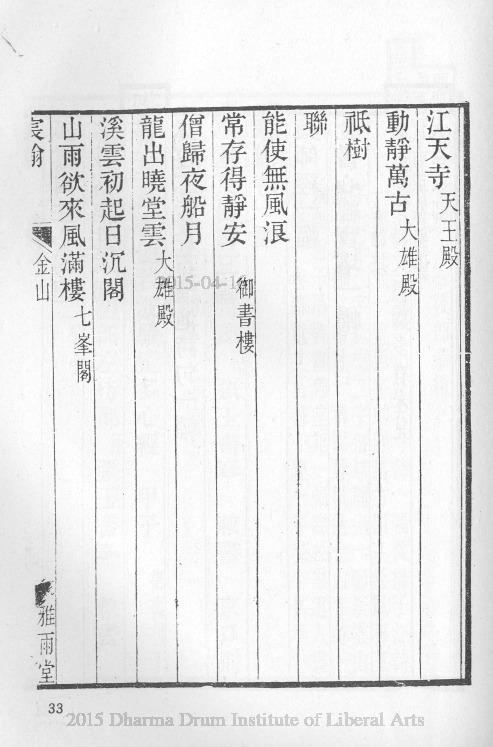 江天寺 天王殿
動靜萬古 大雄殿
祗樹
聯
能使無風浪
常存得靜安 御書樓
僧歸夜船月
龍出曉堂雲 大雄殿
溪雲初起日沉閣
山雨欲來風滿樓 七峯閣
宸翰 金山 雅雨堂
33
2015-04-1
2015 Dharma Drum Institute of Liberal Arts